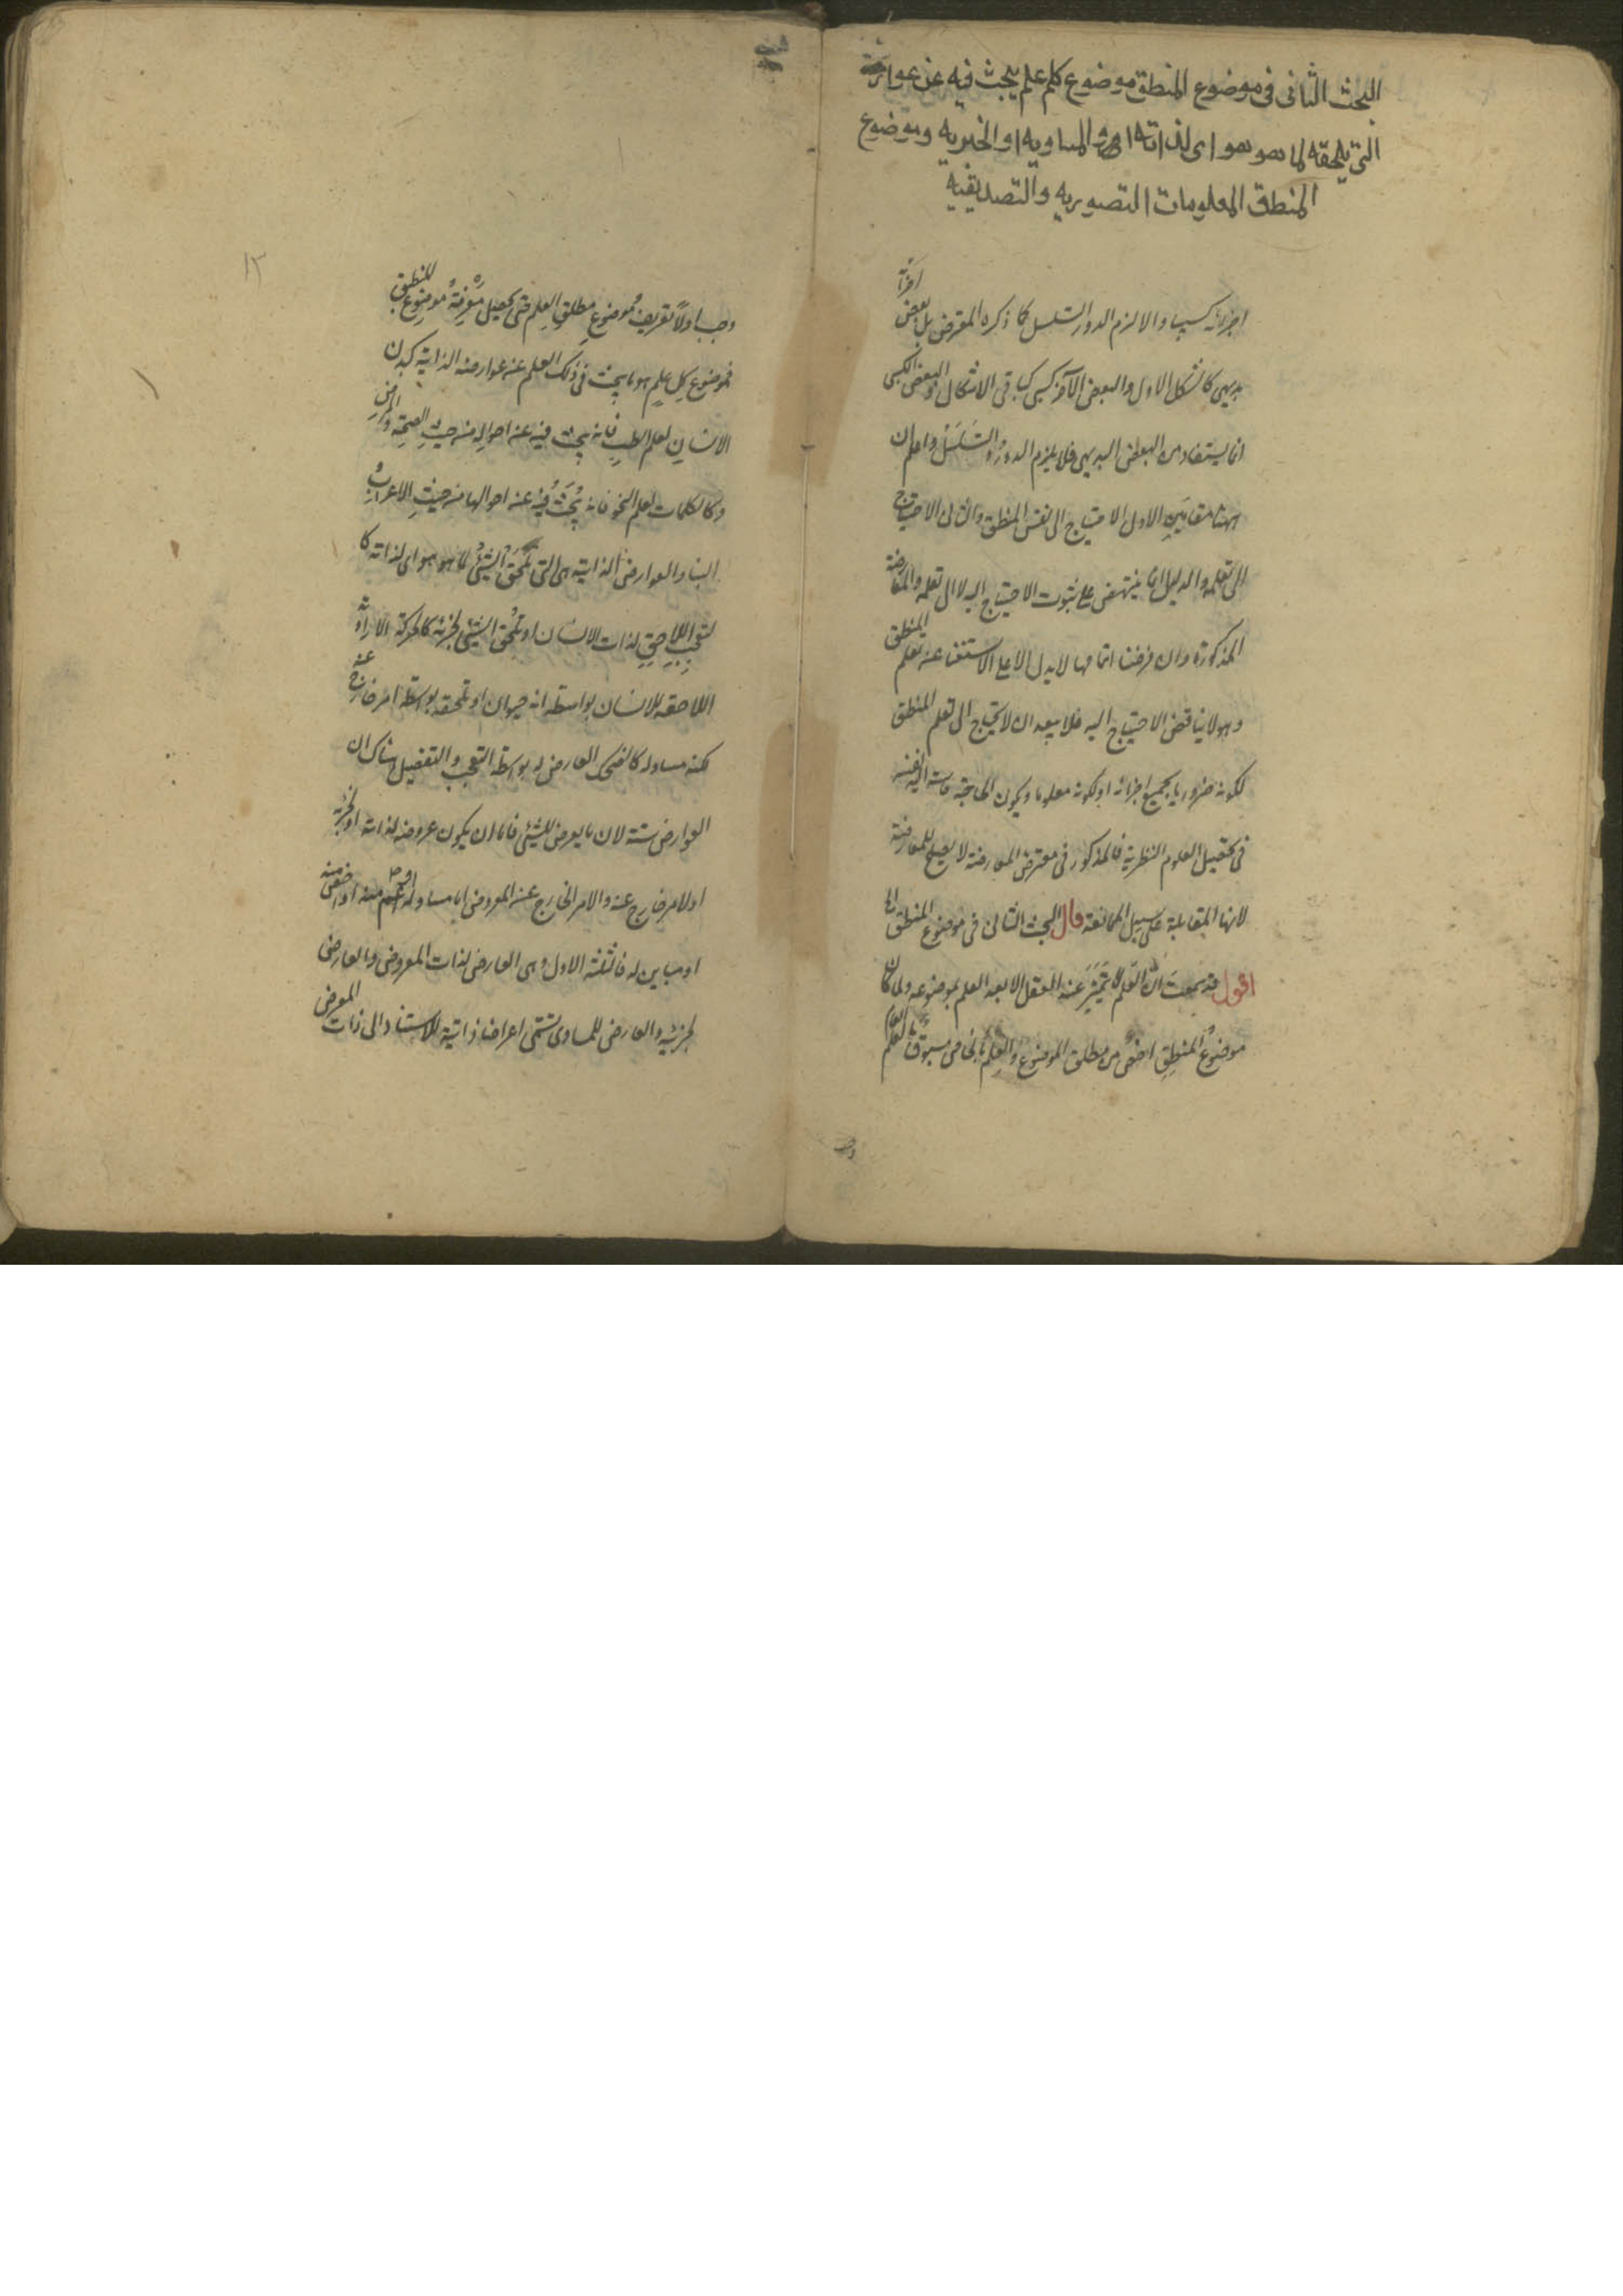 البحث الثانى فى موضوع المنطق موضوع كل علم يبحث فيه عن عوارضه
التى يلحقه لما هو هو اى لذاته او المساويه او الجزئيه وموضوع
المنطق المعلومات التصوريه والتصديقيه
اجزائه كسبيا والا لزم الدور او التسلسل كما ذكره المعترض بل بعض اجزائه
بديهى كالشكل الاول والبعض الآخر كسبى كباقى الاشكال والبعض الكسبى
انما يستفاد من البعض البديهى فلا يلزم الدور والتسلسل واعلم ان
ههنا مقامين الاول الاحتياج الى نفس المنطق والثانى الاحتياج
الى تعلمه والدليل انما ينتهض على ثبوت الاحتياج اليه لا الى تعلمه والمعارضة
المذكورة وان فرضنا اتمامها لا يدل الا على الاستغناء عنه تعلم المنطق
وهو لا يناقض الاحتياج اليه فلا يبعد ان لا يحتاج الى تعلم المنطق
لكونه ضروريا بجميع اجزائه او لكونه معلوما ويكون الحاجة ماسة اليه نفسه
فى تحصيل العلوم النظرية فالمذكور فى معرض المعارضة لا يصلح للمعارضة
لانها المقابلة على سبيل الممانعة قال البحث الثانى فى موضوع المنطق الخ
اقول قد سمعت ان العلم لا يتميز عند العقل الا بعد العلم بموضوعه ولما كان
موضوع المنطق اخص من مطلق الموضوع والعلم بالخاص مسبوق بالعلم العام
وجب
وجب اولا تعريف موضوع مطلق العلم حتى يحصل معرفة موضوع المنطق
فموضوع كل علم هو ما يبحث فى ذلك العلم عنه عوارضه الذاتية كبدن
الانسان لعلم الطب فانه يبحث فيه عنه احواله منه حيث الصحة والمرض
وكالكلمات لعلم النحو فانه يبحث فيه عنه احوالها منه حيث الاعراب
البناء والعوارض الذاتية هى التى تلحق الشئ لما هو هو اى لذاته كا
لتعجب اللاحق لذات الانسان او تلحق الشئ لجزئه كالحركة الارادية
اللاحقة للانسان بواسطة انه حيوان او تلحقه بواسطة امر خارج عنه
لكنه مساو له كالضحك العارض له بواسطة التعجب والتفصيل هناك ان
العوارض ستة لان ما يعرض للشئ فاما ان يكون عروضه لذاته او لجزئه
او لامر خارج عنه والامر الخارج عنه المعروض اما مساو له او اعم منه او اخص منه
او مباين له فالثلثة الاول وهى العارض لذات المعروض والعارض
لجزئيه والعارض للمساوى تسمى اعراضا ذاتية للاستناد الى ذات المعروض
١٢